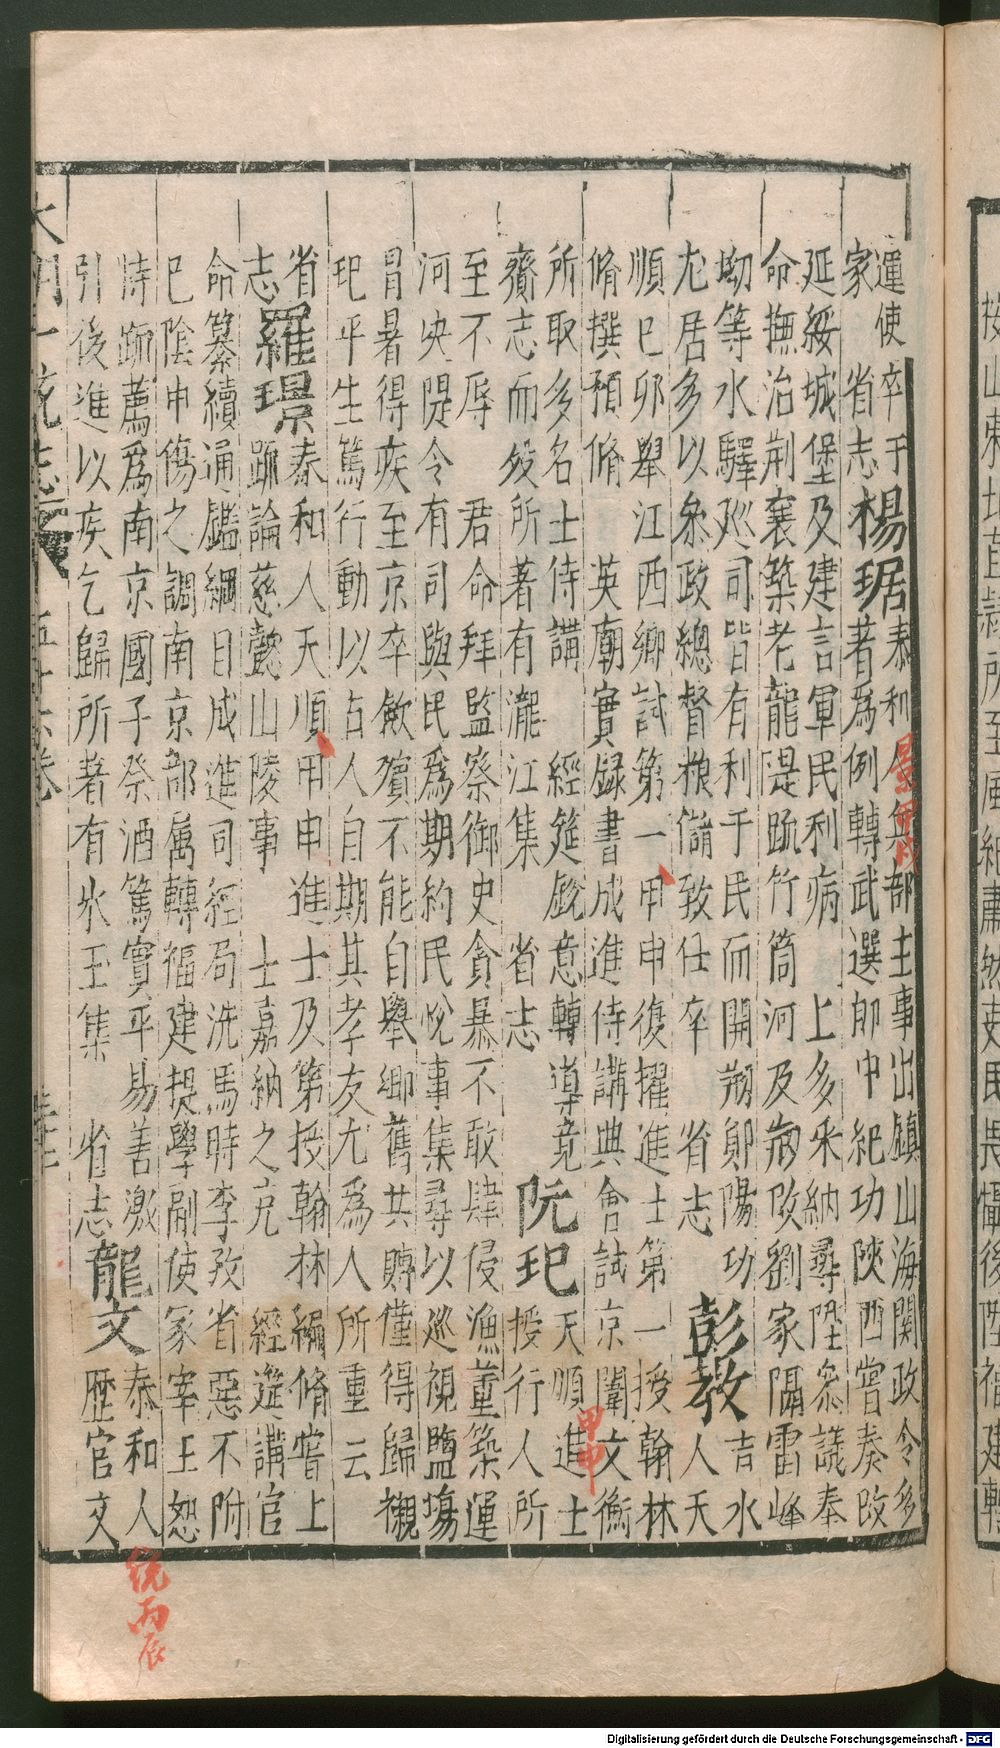 運使卒于
家 省志楊琚泰和人兵部主事出鎮山海關政令多
著為例轉武選郎中紀功陝西嘗奏改
延綏城堡及建言軍民利病 上多采納尋陞叅議奉
命撫治荊襄築老龍隄䟽竹筒河及疏改劉家隔雷峰
坳等水驛廵司皆有利于民而開剏鄖陽功
尤居多以叅政總督粮儲致仕卒 省志彭教吉水人天
順巳卯舉江西鄉試第一甲申復擢進士第一授翰林
脩撰預脩 英廟實録書成進侍講典會試京闈文衡
所取多名士侍講 經筵銳意轉導竟
齎志而殁所著有瀧江集 省志阮玘天順進士授行人所
至不辱 君命拜監察御史貪暴不敢肆侵漁董築運
河央隄令有司與民為期約民悅事集尋以廵視鹽塲
冒暑得疾至京卒歛殯不能自舉鄉舊共賻僅得歸襯
玘平生篤行動以古人自期其孝友尤為人所重云
省志羅璟泰和人天順甲申進士及第授翰林編脩嘗上
䟽論慈懿山陵事 士嘉納之充 經筵講官
命纂續通鑑綱目成進司經局洗馬時李孜省惡不附
巳陰中傷之調南京部属轉福建提學副使冢宰王恕
特䟽薦為南京國子祭酒篤實平易善激
引後進以疾乞歸所著有氷玉集 省志龍文泰和人歷官文
大明一統志 五十六卷
景甲戌
甲申
統丙辰
Digitalisierung gefördert durch die Deutsche Forschungsgemeinschaft - DFG